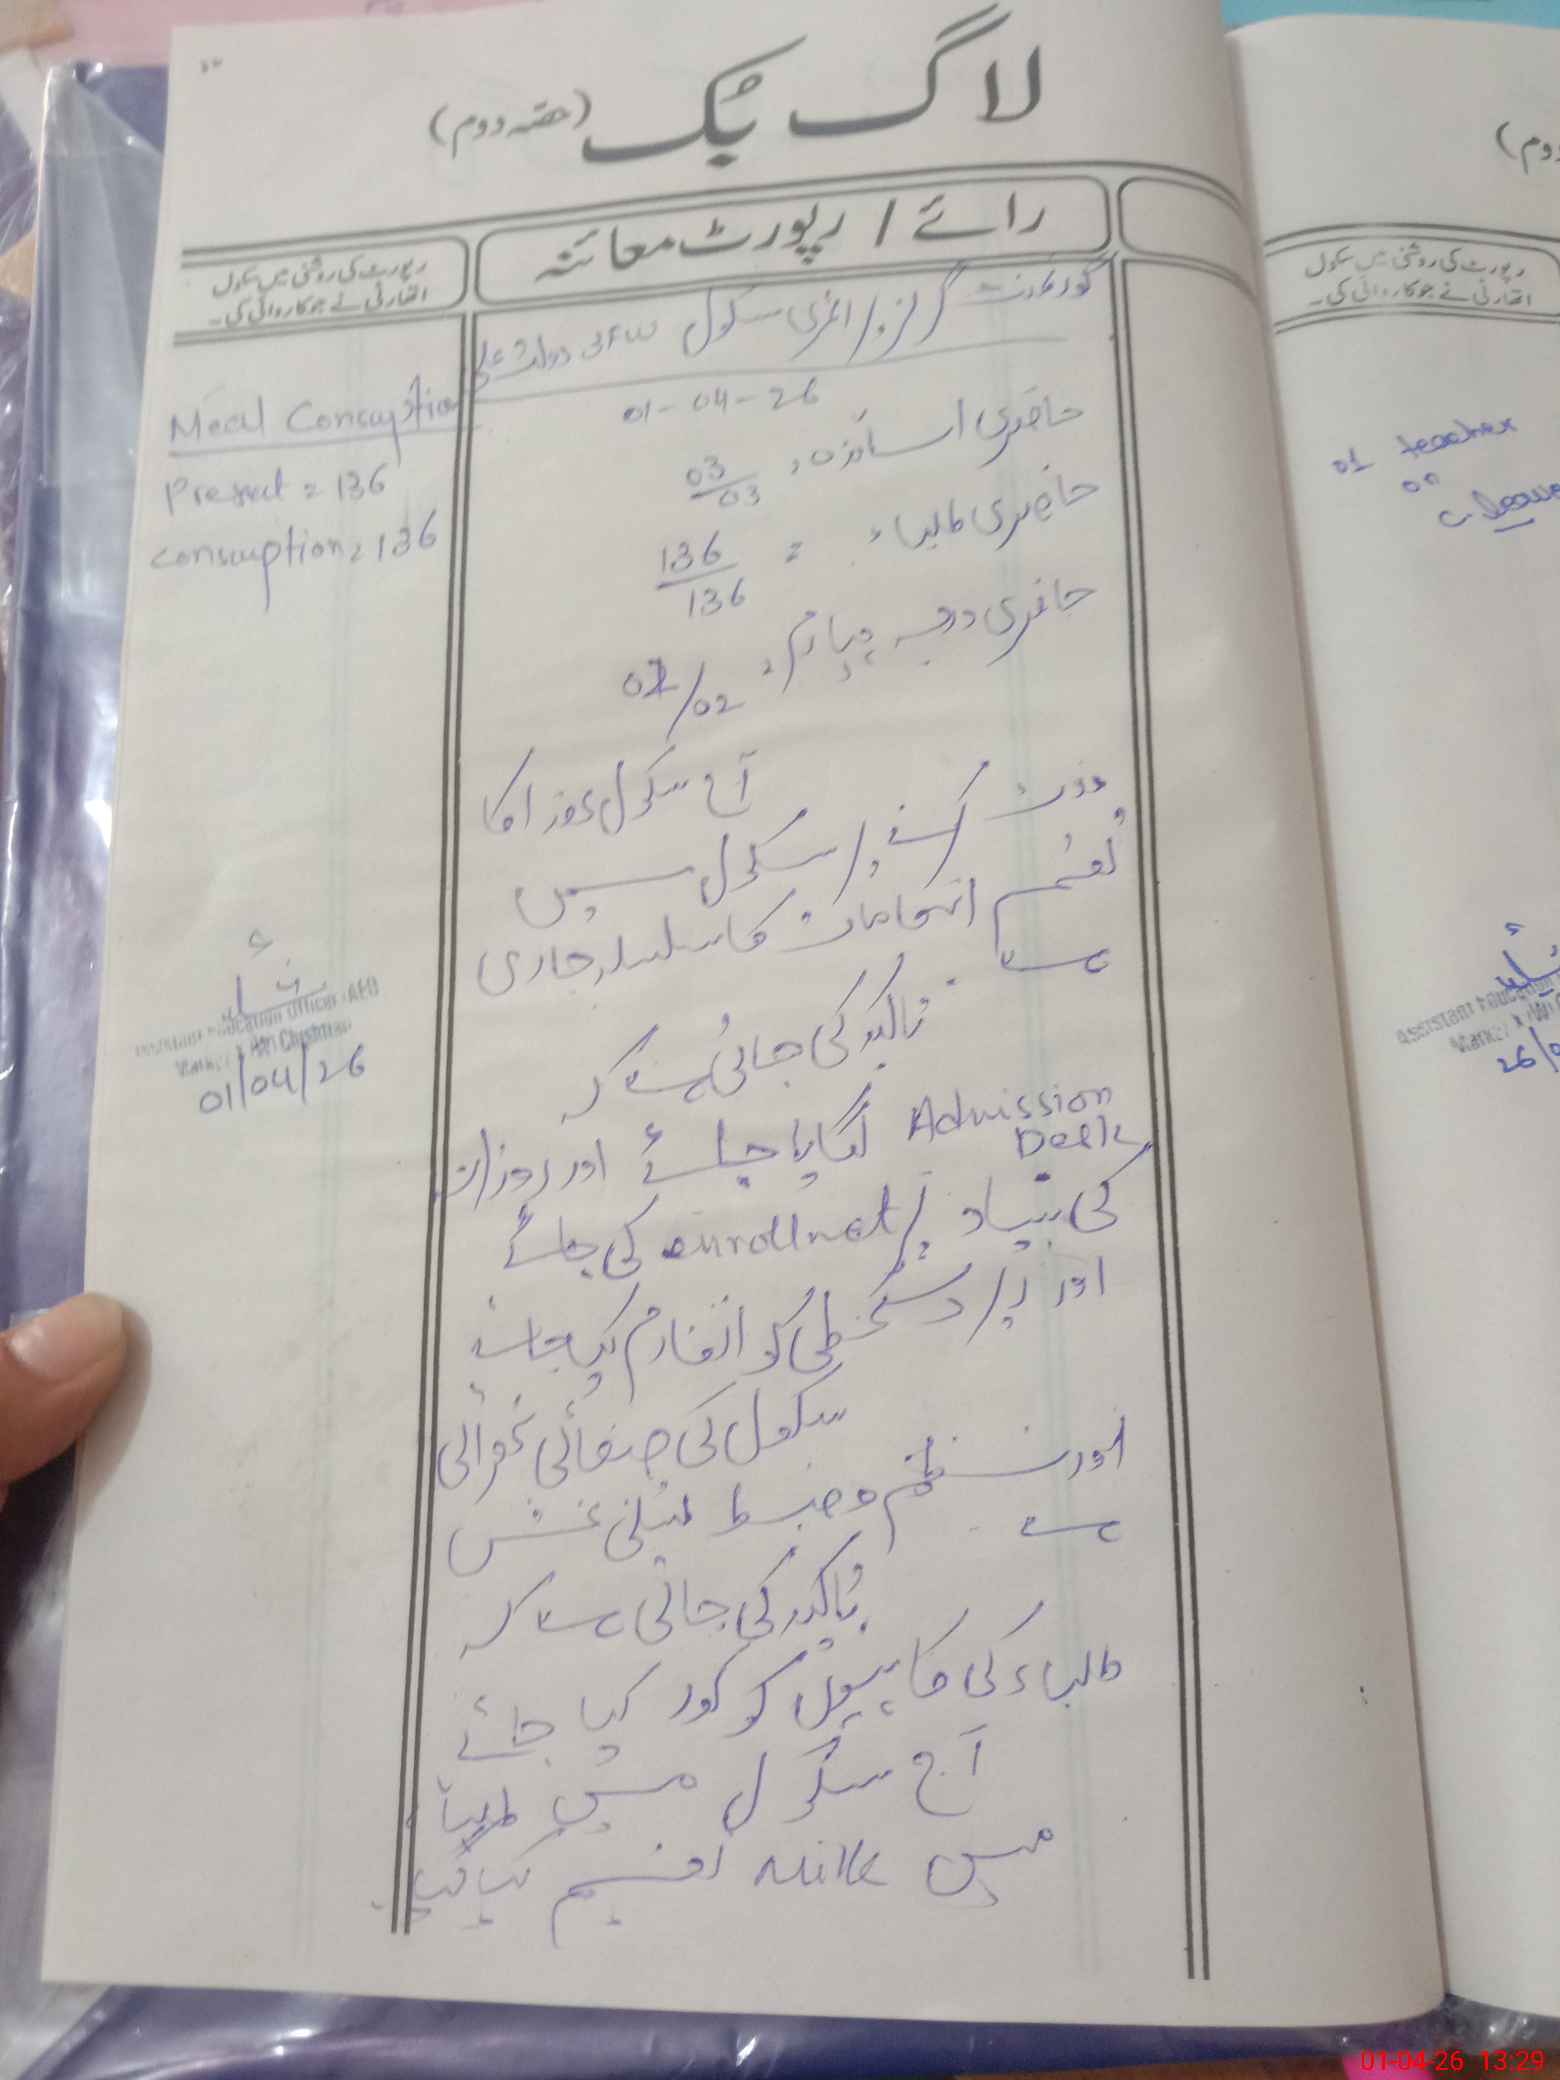 لاگ بک (حصہ دوم)
رائے / رپورٹ معائنہ
رپورٹ کی روشنی میں سکول
اتھارٹی نے جو کاروائی کی۔
گورنمنٹ گرلز پرائمری سکول 3FW دولت
01-04-26
حاضری اساتذہ، 03/03
حاضری طلباء = 136/136
حاضری درجہ چہارم، 02/02
آج سکول ھذا کا
وزٹ کرنے پر سکول میں
تعلیم انتظامات کا سلسلہ جاری
ہے
تاکید کی جاتی ہے کہ
Admission Desk لگایا جائے اور روزانہ
کی بنیاد پر enrollnet کی جائے
اور پر کو انفارم کیا جائے
سکول کی صفائی ستھرائی
اور نظم و ضبط تسلی بخش
ہے۔
تاکید کی جاتی ہے کہ
طلباء کی کاپیوں کو کور کیا جائے
آج سکول میں طلباء
میں Milk تقسیم کیا گیا۔
Meal Consuption
Present = 136
Consumption = 136
Assistant Education Officer (AEO)
Markaz Chishtian
01/04/26
دوم)
رپورٹ کی روشنی میں سکول
اتھارٹی نے جو کاروائی کی۔
01 teacher
on
Assistant Education
26/0
01-04-26 13:29